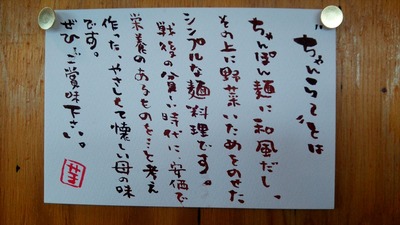 "ちゃんらー"とは
ちゃんぽん麺に和風だし、
その上に野菜いためをのせた
シンプルな麺料理です。
戦後の貧しい時代に、安価で
栄養のあるものをと考え
作った、やさしくて懐しい母の味
です。
ぜひ、ご賞味下さい。